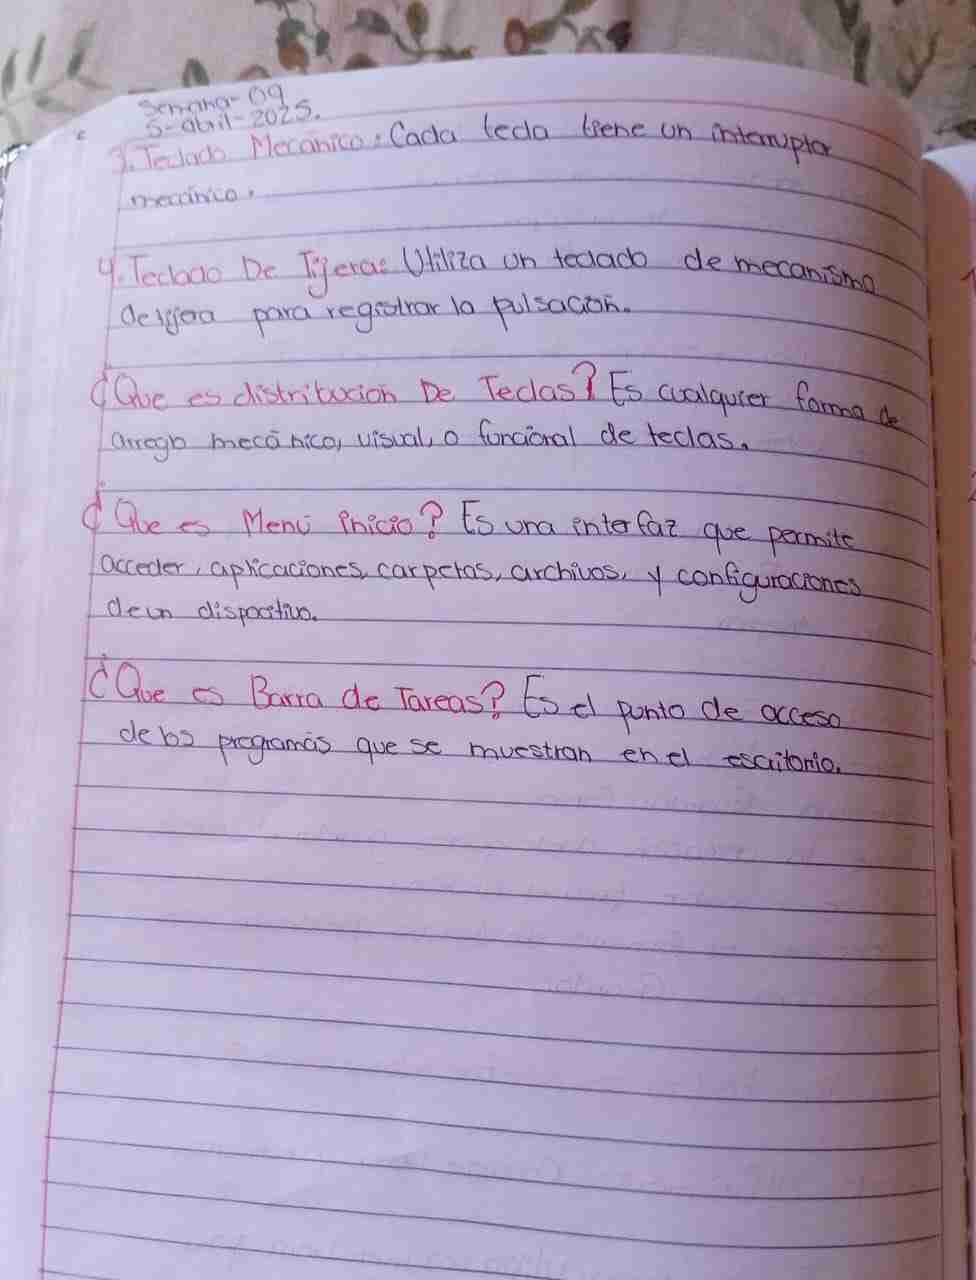 Semana-09
5-abril-2025.
3. Teclado Mecánico: Cada tecla tiene un interruptor
mecánico.
4. Teclado De Tijera: Utiliza un teclado de mecanismo
de tijera para registrar la pulsación.
¿Que es distribución De Teclas? Es cualquier forma de
arreglo mecánico, visual, o funcional de teclas.
¿Que es Menú inicio? Es una interfaz que permite
acceder, aplicaciones, carpetas, archivos, y configuraciones
de un dispositivo.
¿Que es Barra de Tareas? Es el punto de acceso
de los programas que se muestran en el escritorio.